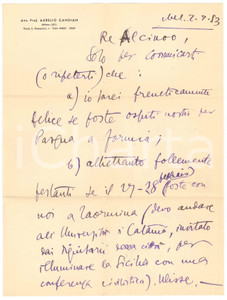 AVV. PROF. AURELIO CANDIAN
Mil. 2.3.53
Re Alcinoo,
Solo per comunicarti
(o ripeterti) che:
a) io sarei freneticamente
felice se foste ospiti nostri per
Pasqua a Formia;
b) altrettanto follemente
festanti se il 27-28 foste con
noi a Taormina (devo andare
all'Università di Catania, invitato
dai
illuminare la Sicilia con una
conferenza civilistica). Ulisse.